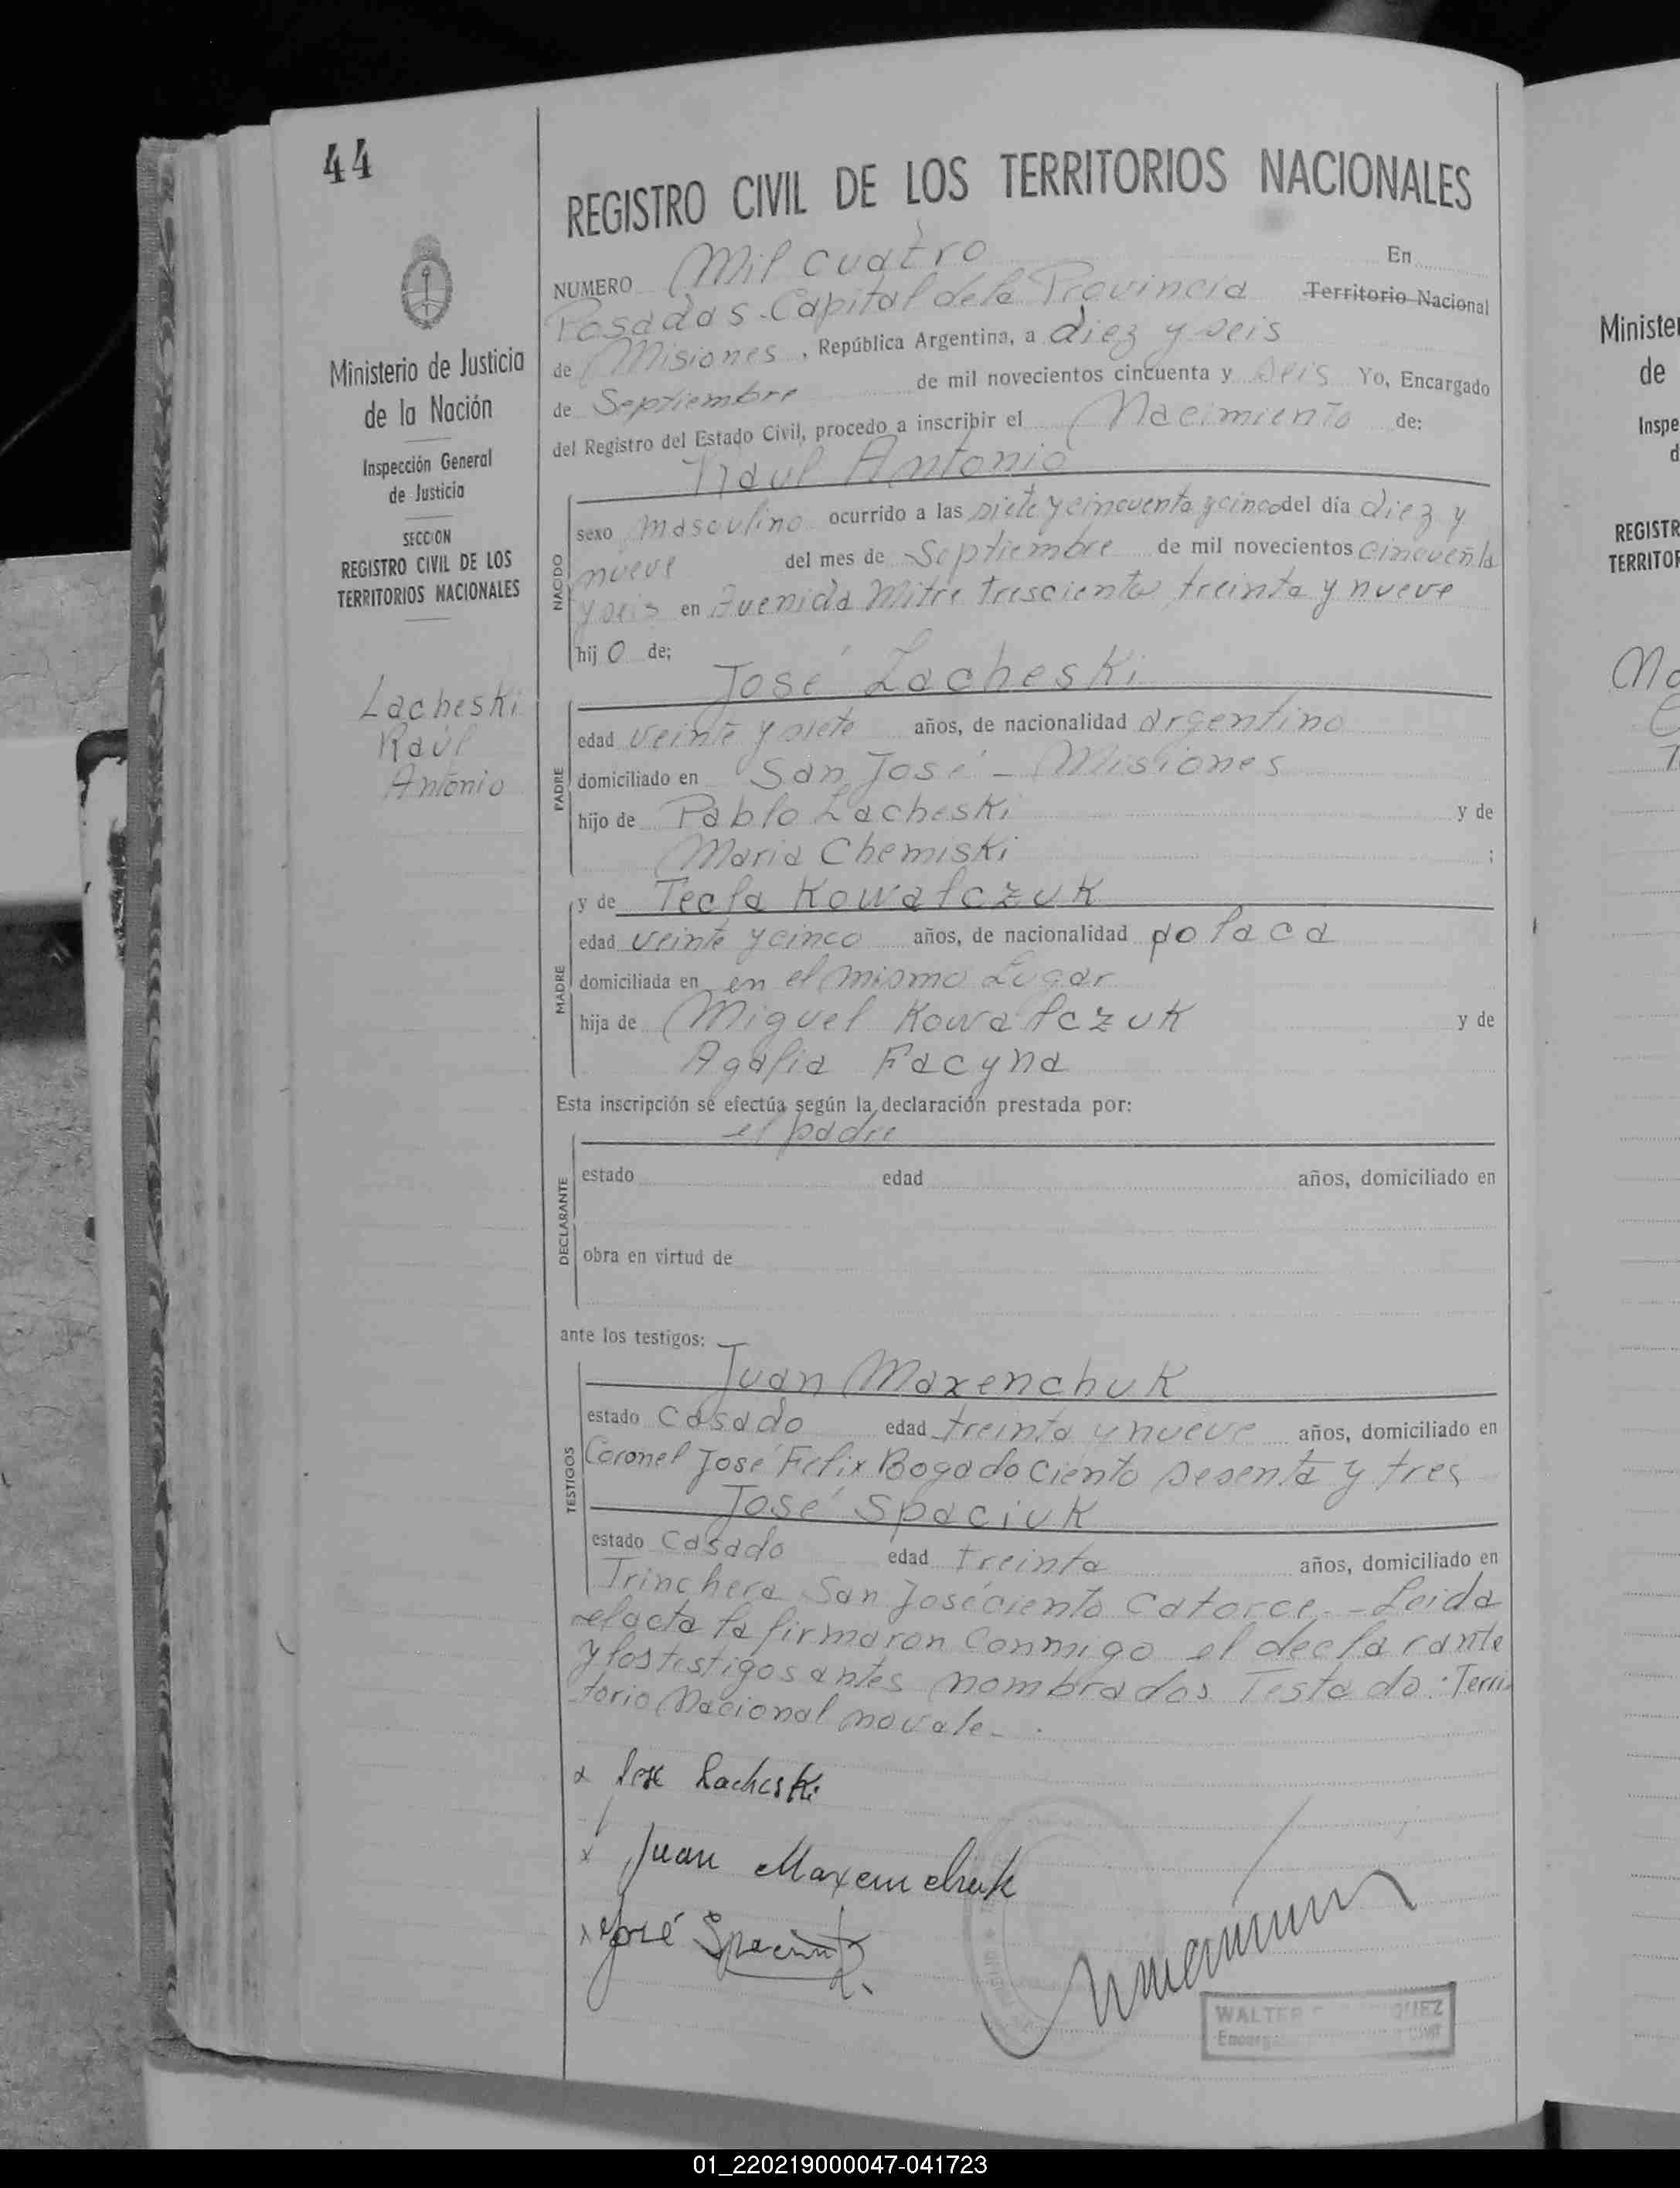 44
REGISTRO CIVIL DE LOS TERRITORIOS NACIONALES
NUMERO Mil cuatro En
Posadas. Capital de la Provincia Territorio Nacional
de Misiones, República Argentina, a diez y seis
de Septiembre de mil novecientos cincuenta y seis Yo, Encargado
del Registro del Estado Civil, procedo a inscribir el Nacimiento de:
Raul Antonio
Ministerio de Justicia
de la Nación
Inspección General
de Justicia
SECCION
REGISTRO CIVIL DE LOS
TERRITORIOS NACIONALES
Lacheski
Raúl
Antonio
NACIDO
sexo masculino ocurrido a las siete y cincuenta y cinco del día diez y
nueve del mes de Septiembre de mil novecientos cincuenta
y seis en Avenida Mitre trescientos treinta y nueve
hij o de;
José Lacheski
PADRE
edad veinte y siete años, de nacionalidad argentino
domiciliado en San José - Misiones
hijo de Pablo Lacheski y de
Maria Chemiski ;
y de Tecla Kowalczuk
MADRE
edad veinte y cinco años, de nacionalidad polaca
domiciliada en en el mismo Lugar
hija de Miguel Kowalczuk y de
Agafia Facyna
Esta inscripción se efectúa según la declaración prestada por:
el padre
DECLARANTE
estado edad años, domiciliado en
obra en virtud de
ante los testigos:
Juan Maxenchuk
TESTIGOS
estado Casado edad treinta y nueve años, domiciliado en
Coronel José Felix Bogado ciento sesenta y tres
José Spaciuk
estado Casado edad treinta años, domiciliado en
Trinchera San José ciento catorce.- Leida
el acta la firmaron conmigo el declarante
y los testigos antes nombrados Testado: Terri
torio Nacional no vale-.
x José Lacheski
x Juan Maxemchuk
x José Spaciuk
WALTER
01_220219000047-041723
Minister
de
Inspe
d
REGISTR
TERRITOR